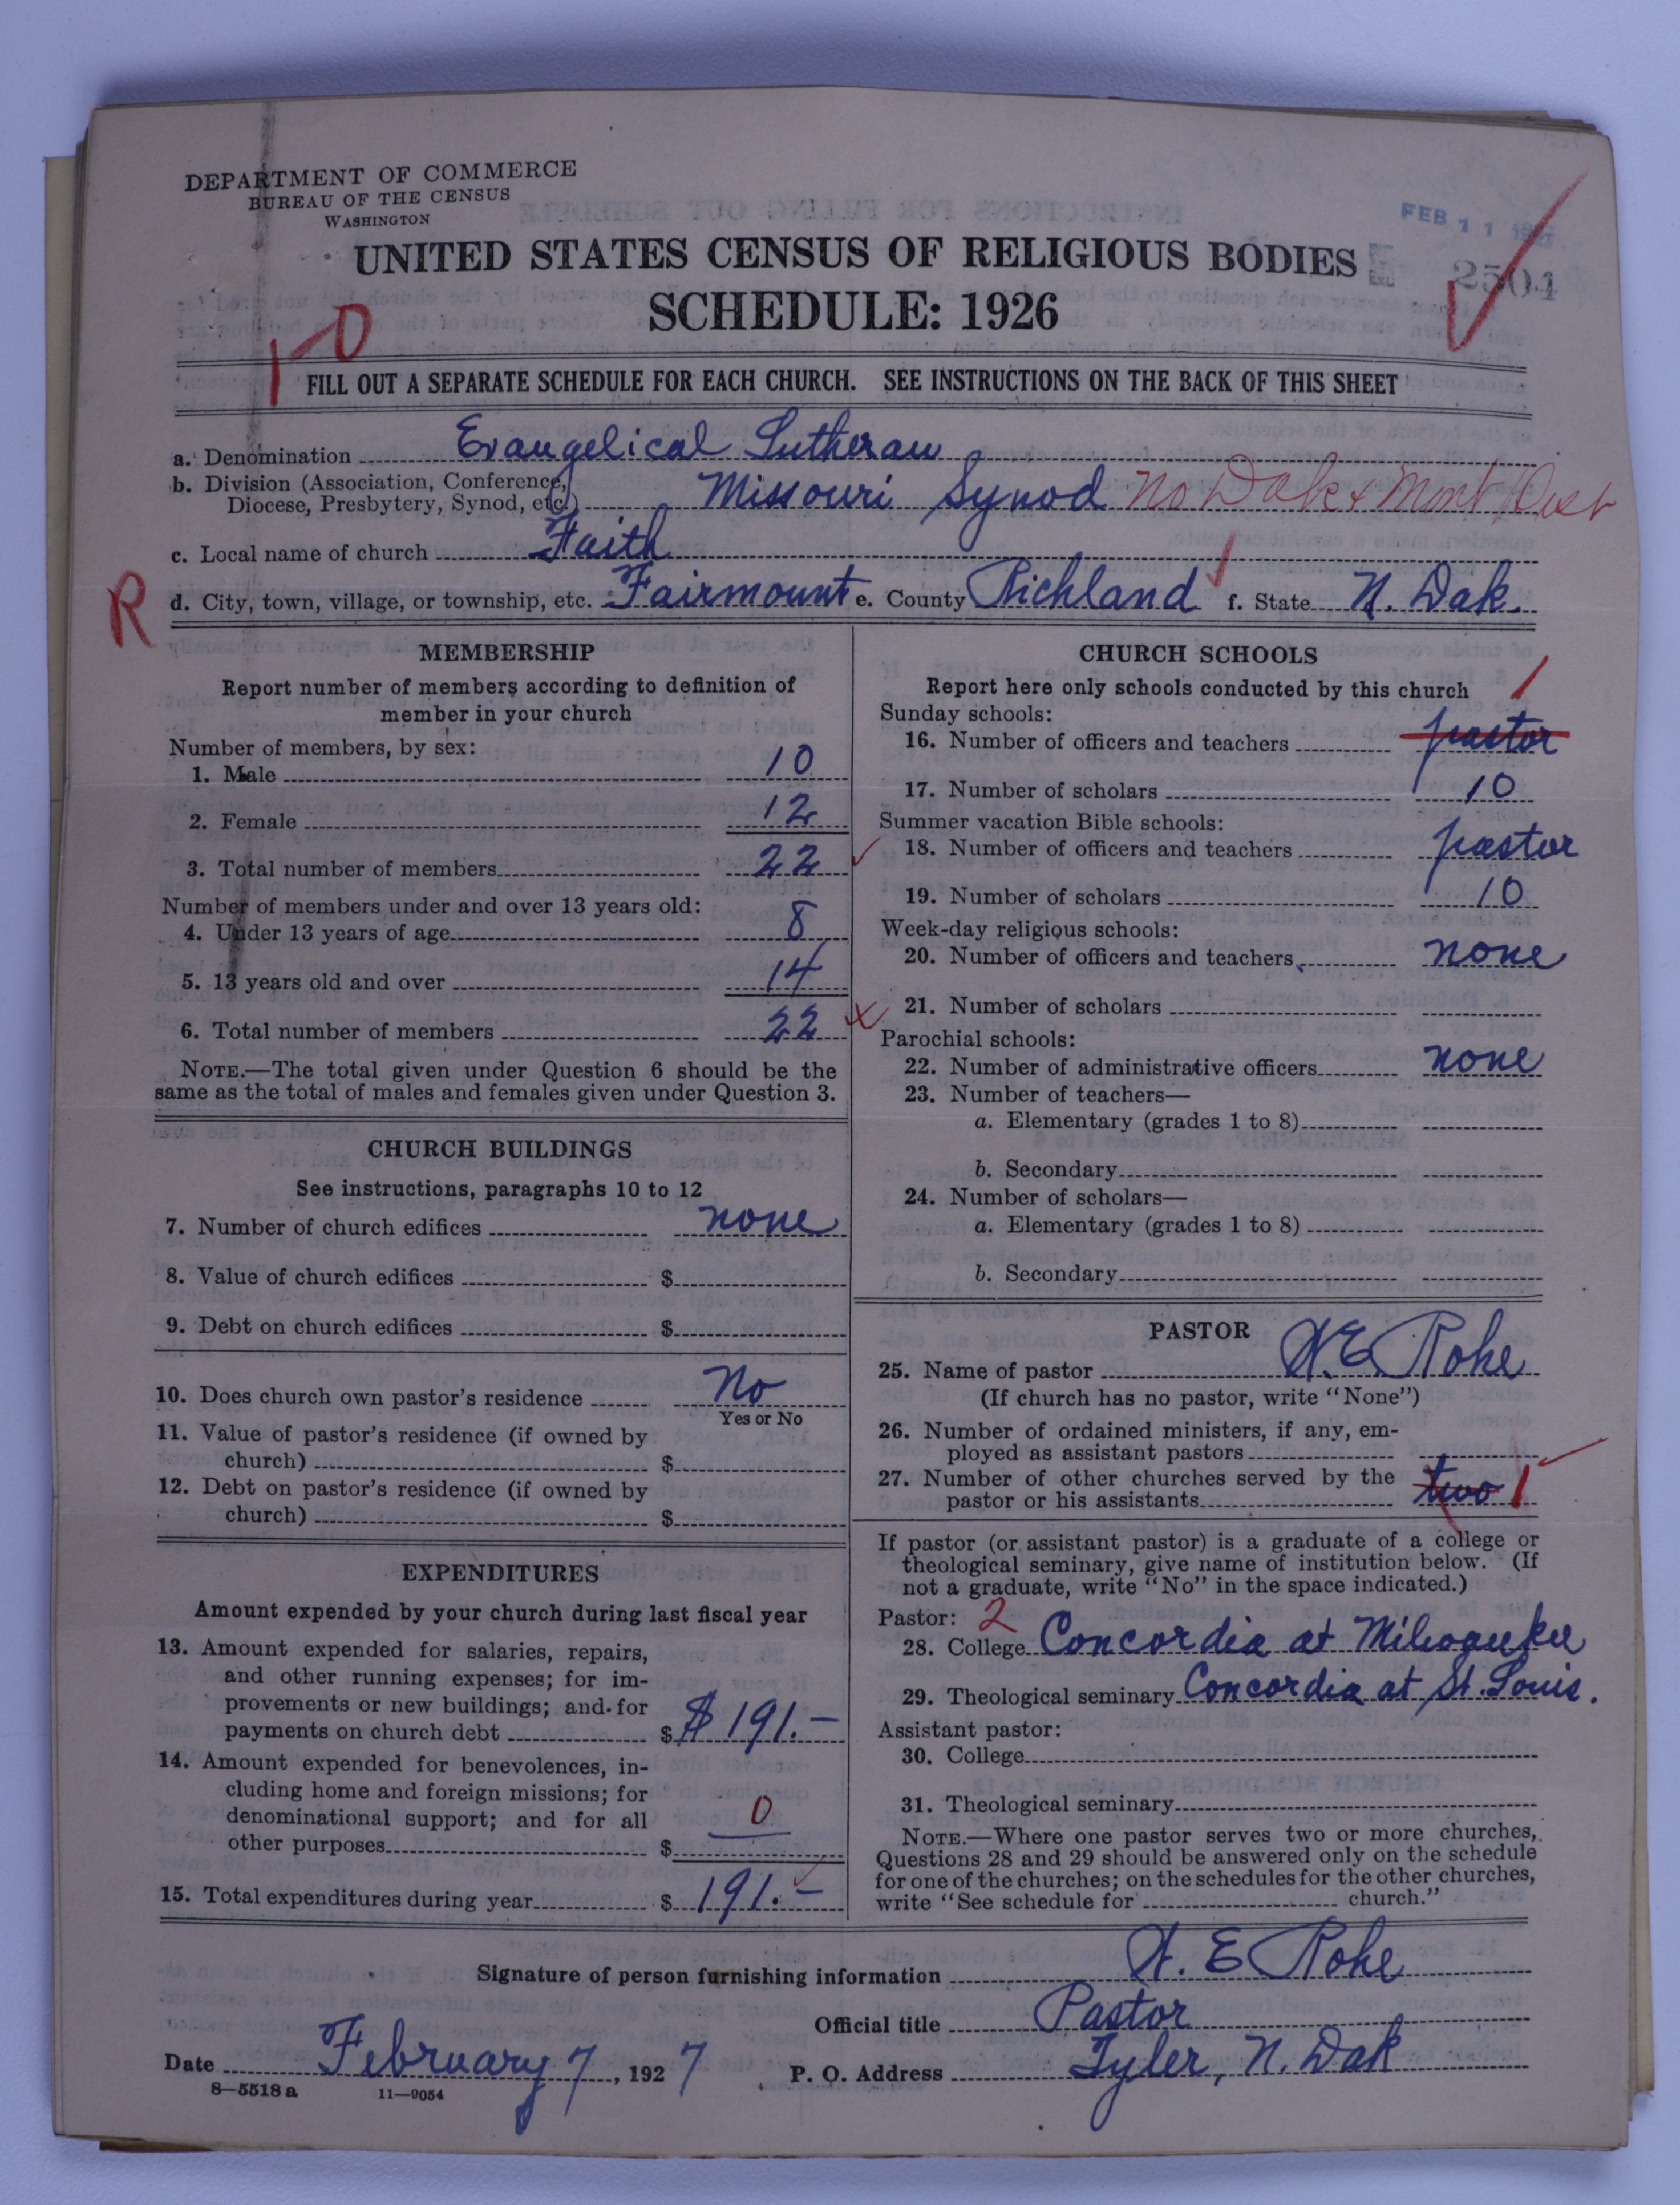 DEPARTMENT OF COMMERCE
BUREAU OF THE CENSUS
WASHINGTON
FEB 11 1927
2504
UNITED STATES CENSUS OF RELIGIOUS BODIES
SCHEDULE: 1926
1-0
FILL OUT A SEPARATE SCHEDULE FOR EACH CHURCH. SEE INSTRUCTIONS ON THE BACK OF THIS SHEET
a. Denomination Evangelical Lutheran
b. Division (Association, Conference,
Diocese, Presbytery, Synod, etc.) Missouri Synod No Dak & Mont Dist
c. Local name of church Faith
R
d. City, town, village, or township, etc. Fairmount e. County Richland f. State N. Dak.
MEMBERSHIP
Report number of members according to definition of
member in your church
Number of members, by sex:
1. Male 10
2. Female 12
3. Total number of members 22
Number of members under and over 13 years old:
4. Under 13 years of age 8
5. 13 years old and over 14
6. Total number of members 22
NOTE.—The total given under Question 6 should be the
same as the total of males and females given under Question 3.
CHURCH BUILDINGS
See instructions, paragraphs 10 to 12
7. Number of church edifices none
8. Value of church edifices $
9. Debt on church edifices $
10. Does church own pastor's residence No
Yes or No
11. Value of pastor's residence (if owned by
church) $
12. Debt on pastor's residence (if owned by
church) $
EXPENDITURES
Amount expended by your church during last fiscal year
13. Amount expended for salaries, repairs,
and other running expenses; for im-
provements or new buildings; and for
payments on church debt $ $ 191.—
14. Amount expended for benevolences, in-
cluding home and foreign missions; for
denominational support; and for all
other purposes $ 0
15. Total expenditures during year $ 191.—
CHURCH SCHOOLS
Report here only schools conducted by this church
Sunday schools: 1
16. Number of officers and teachers pastor
17. Number of scholars 10
Summer vacation Bible schools:
18. Number of officers and teachers pastor
19. Number of scholars 10
Week-day religious schools:
20. Number of officers and teachers none
21. Number of scholars
Parochial schools:
22. Number of administrative officers none
23. Number of teachers—
a. Elementary (grades 1 to 8)
b. Secondary
24. Number of scholars—
a. Elementary (grades 1 to 8)
b. Secondary
PASTOR
25. Name of pastor H.E. Rohe
(If church has no pastor, write "None")
26. Number of ordained ministers, if any, em-
ployed as assistant pastors
27. Number of other churches served by the
pastor or his assistants two 1
If pastor (or assistant pastor) is a graduate of a college or
theological seminary, give name of institution below. (If
not a graduate, write "No" in the space indicated.)
Pastor: 2
28. College Concordia at Milwaukee
29. Theological seminary Concordia at St. Louis.
Assistant pastor:
30. College
31. Theological seminary
NOTE.—Where one pastor serves two or more churches,
Questions 28 and 29 should be answered only on the schedule
for one of the churches; on the schedules for the other churches,
write "See schedule for church."
Signature of person furnishing information H. E Rohe
Official title Pastor
Date February 7, 1927 P. O. Address Tyler, N. Dak
8—5518 a 11—9054